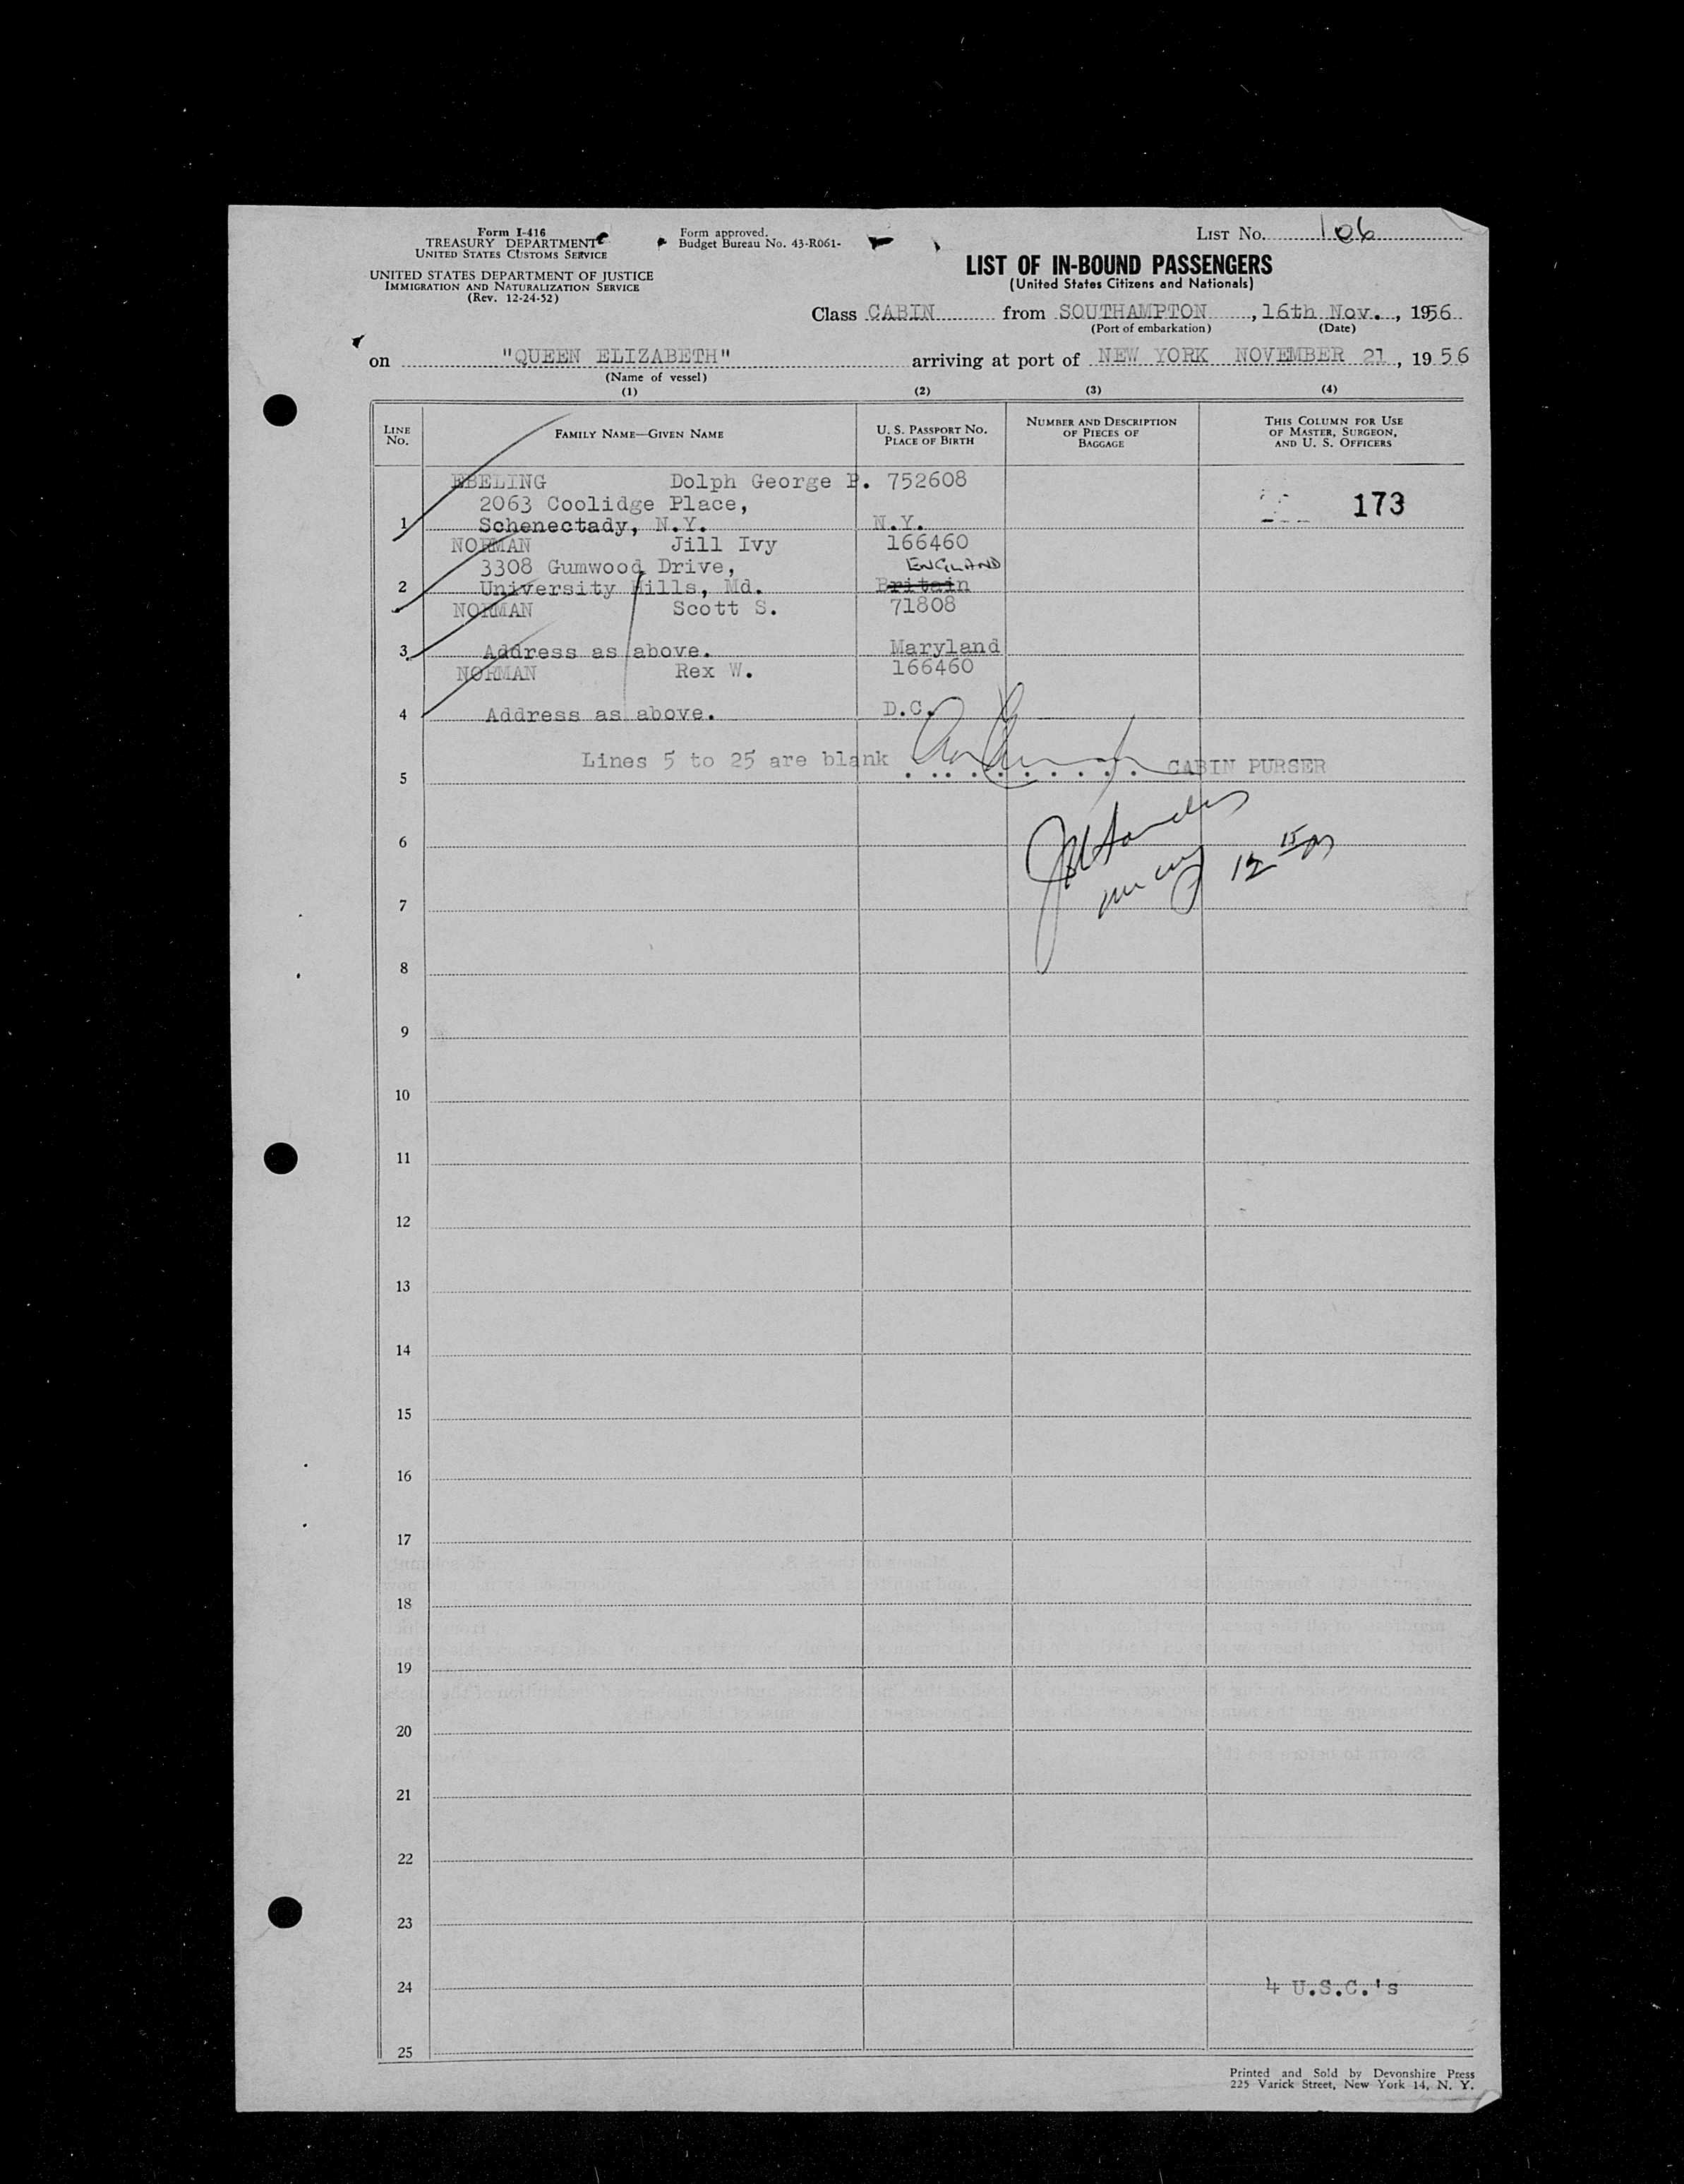 Form I-416
TREASURY DEPARTMENT
UNITED STATES CUSTOMS SERVICE
UNITED STATES DEPARTMENT OF JUSTICE
IMMIGRATION AND NATURALIZATION SERVICE
(Rev. 12-24-52)
Form approved.
Budget Bureau No. 43-R061-
LIST No. 106
LIST OF IN-BOUND PASSENGERS
(United States Citizens and Nationals)
Class CABIN from SOUTHAMPTON, 16th Nov., 1956
(Port of embarkation) (Date)
on "QUEEN ELIZABETH" arriving at port of NEW YORK NOVEMBER 21, 1956
(Name of vessel)
(1) (2) (3) (4)
LINE No. FAMILY NAME—GIVEN NAME U. S. PASSPORT No. PLACE OF BIRTH NUMBER AND DESCRIPTION OF PIECES OF BAGGAGE THIS COLUMN FOR USE OF MASTER, SURGEON, AND U. S. OFFICERS
EBELING Dolph George P. 752608
2063 Coolidge Place, 173
1 Schenectady, N.Y. N.Y.
NORMAN Jill Ivy 166460
3308 Gumwood Drive, ENGLAND
2 University Hills, Md. Britain
NORMAN Scott S. 71808
3 Address as above. Maryland
NORMAN Rex W. 166460
4 Address as above. D.C.
Lines 5 to 25 are blank CABIN PURSER
5
6
7
8
9
10
11
12
13
14
15
16
17
18
19
20
21
22
23
24 4 U.S.C.'s
25
Printed and Sold by Devonshire Press
225 Varick Street, New York 14, N. Y.